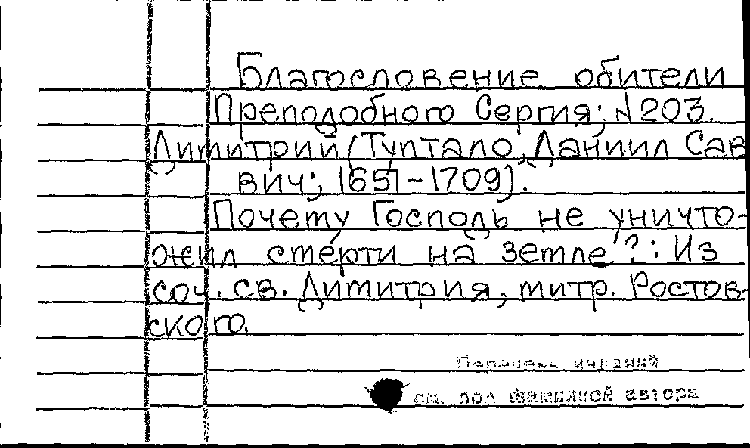 Благословение обители
Преподобного Сергия; №203.
Димитрий (Туптало, Даниил Сав
вич; 1651-1709).
Почему Господь не уничто-
жил смерти на земле?: Из
соч. св. Димитрия, митр. Ростов-
ского.
Перечень изданий
см. под фамилией автора